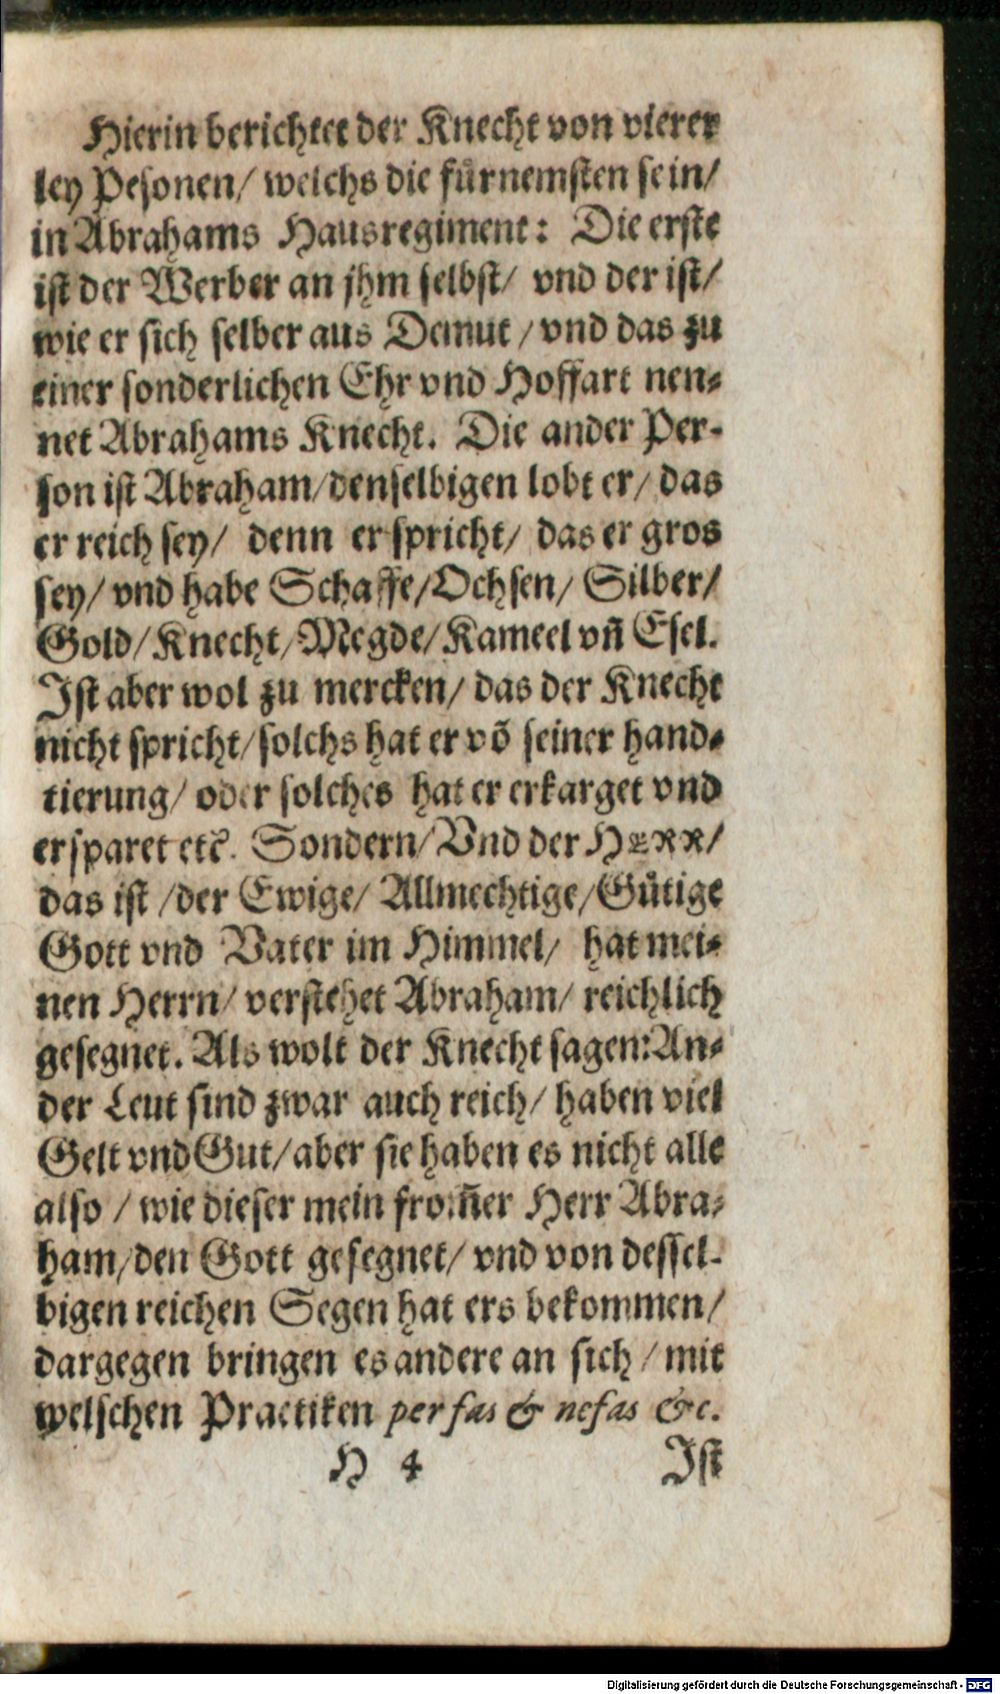 Hierin berichtet der Knecht von vierer
ley Pesonen/ welchs die fürnemsten sein/
in Abrahams Hausregiment: Die erste
ist der Werber an jhm selbst/ vnd der ist/
wie er sich selber aus Demut / vnd das zu
einer sonderlichen Ehr vnd Hoffart nen-
net Abrahams Knecht. Die ander Per-
son ist Abraham/denselbigen lobt er/ das
er reich sey/ denn er spricht/ das er gros
sey/ vnd habe Schaffe/Ochsen/ Silber/
Gold/Knecht/Megde/Kameel vñ Esel.
Ist aber wol zu mercken/ das der Knecht
nicht spricht/solchs hat er võ seiner hand-
tierung/ oder solches hat er erkarget vnd
ersparet etc̃. Sondern/Vnd der HERR/
das ist /der Ewige/ Allmechtige/Gütige
Gott vnd Vater im Himmel/ hat mei-
nen Herrn/ verstehet Abraham/ reichlich
gesegnet. Als wolt der Knecht sagen:An-
der Leut sind zwar auch reich/ haben viel
Gelt vnd Gut/aber sie haben es nicht alle
also / wie dieser mein from̃er Herr Abra-
ham/den Gott gesegnet/ vnd von dessel-
bigen reichen Segen hat ers bekommen/
dargegen bringen es andere an sich / mit
welschen Practiken per fas & nefas &c.
H 4 Ist
Digitalisierung gefördert durch die Deutsche Forschungsgemeinschaft - DFG